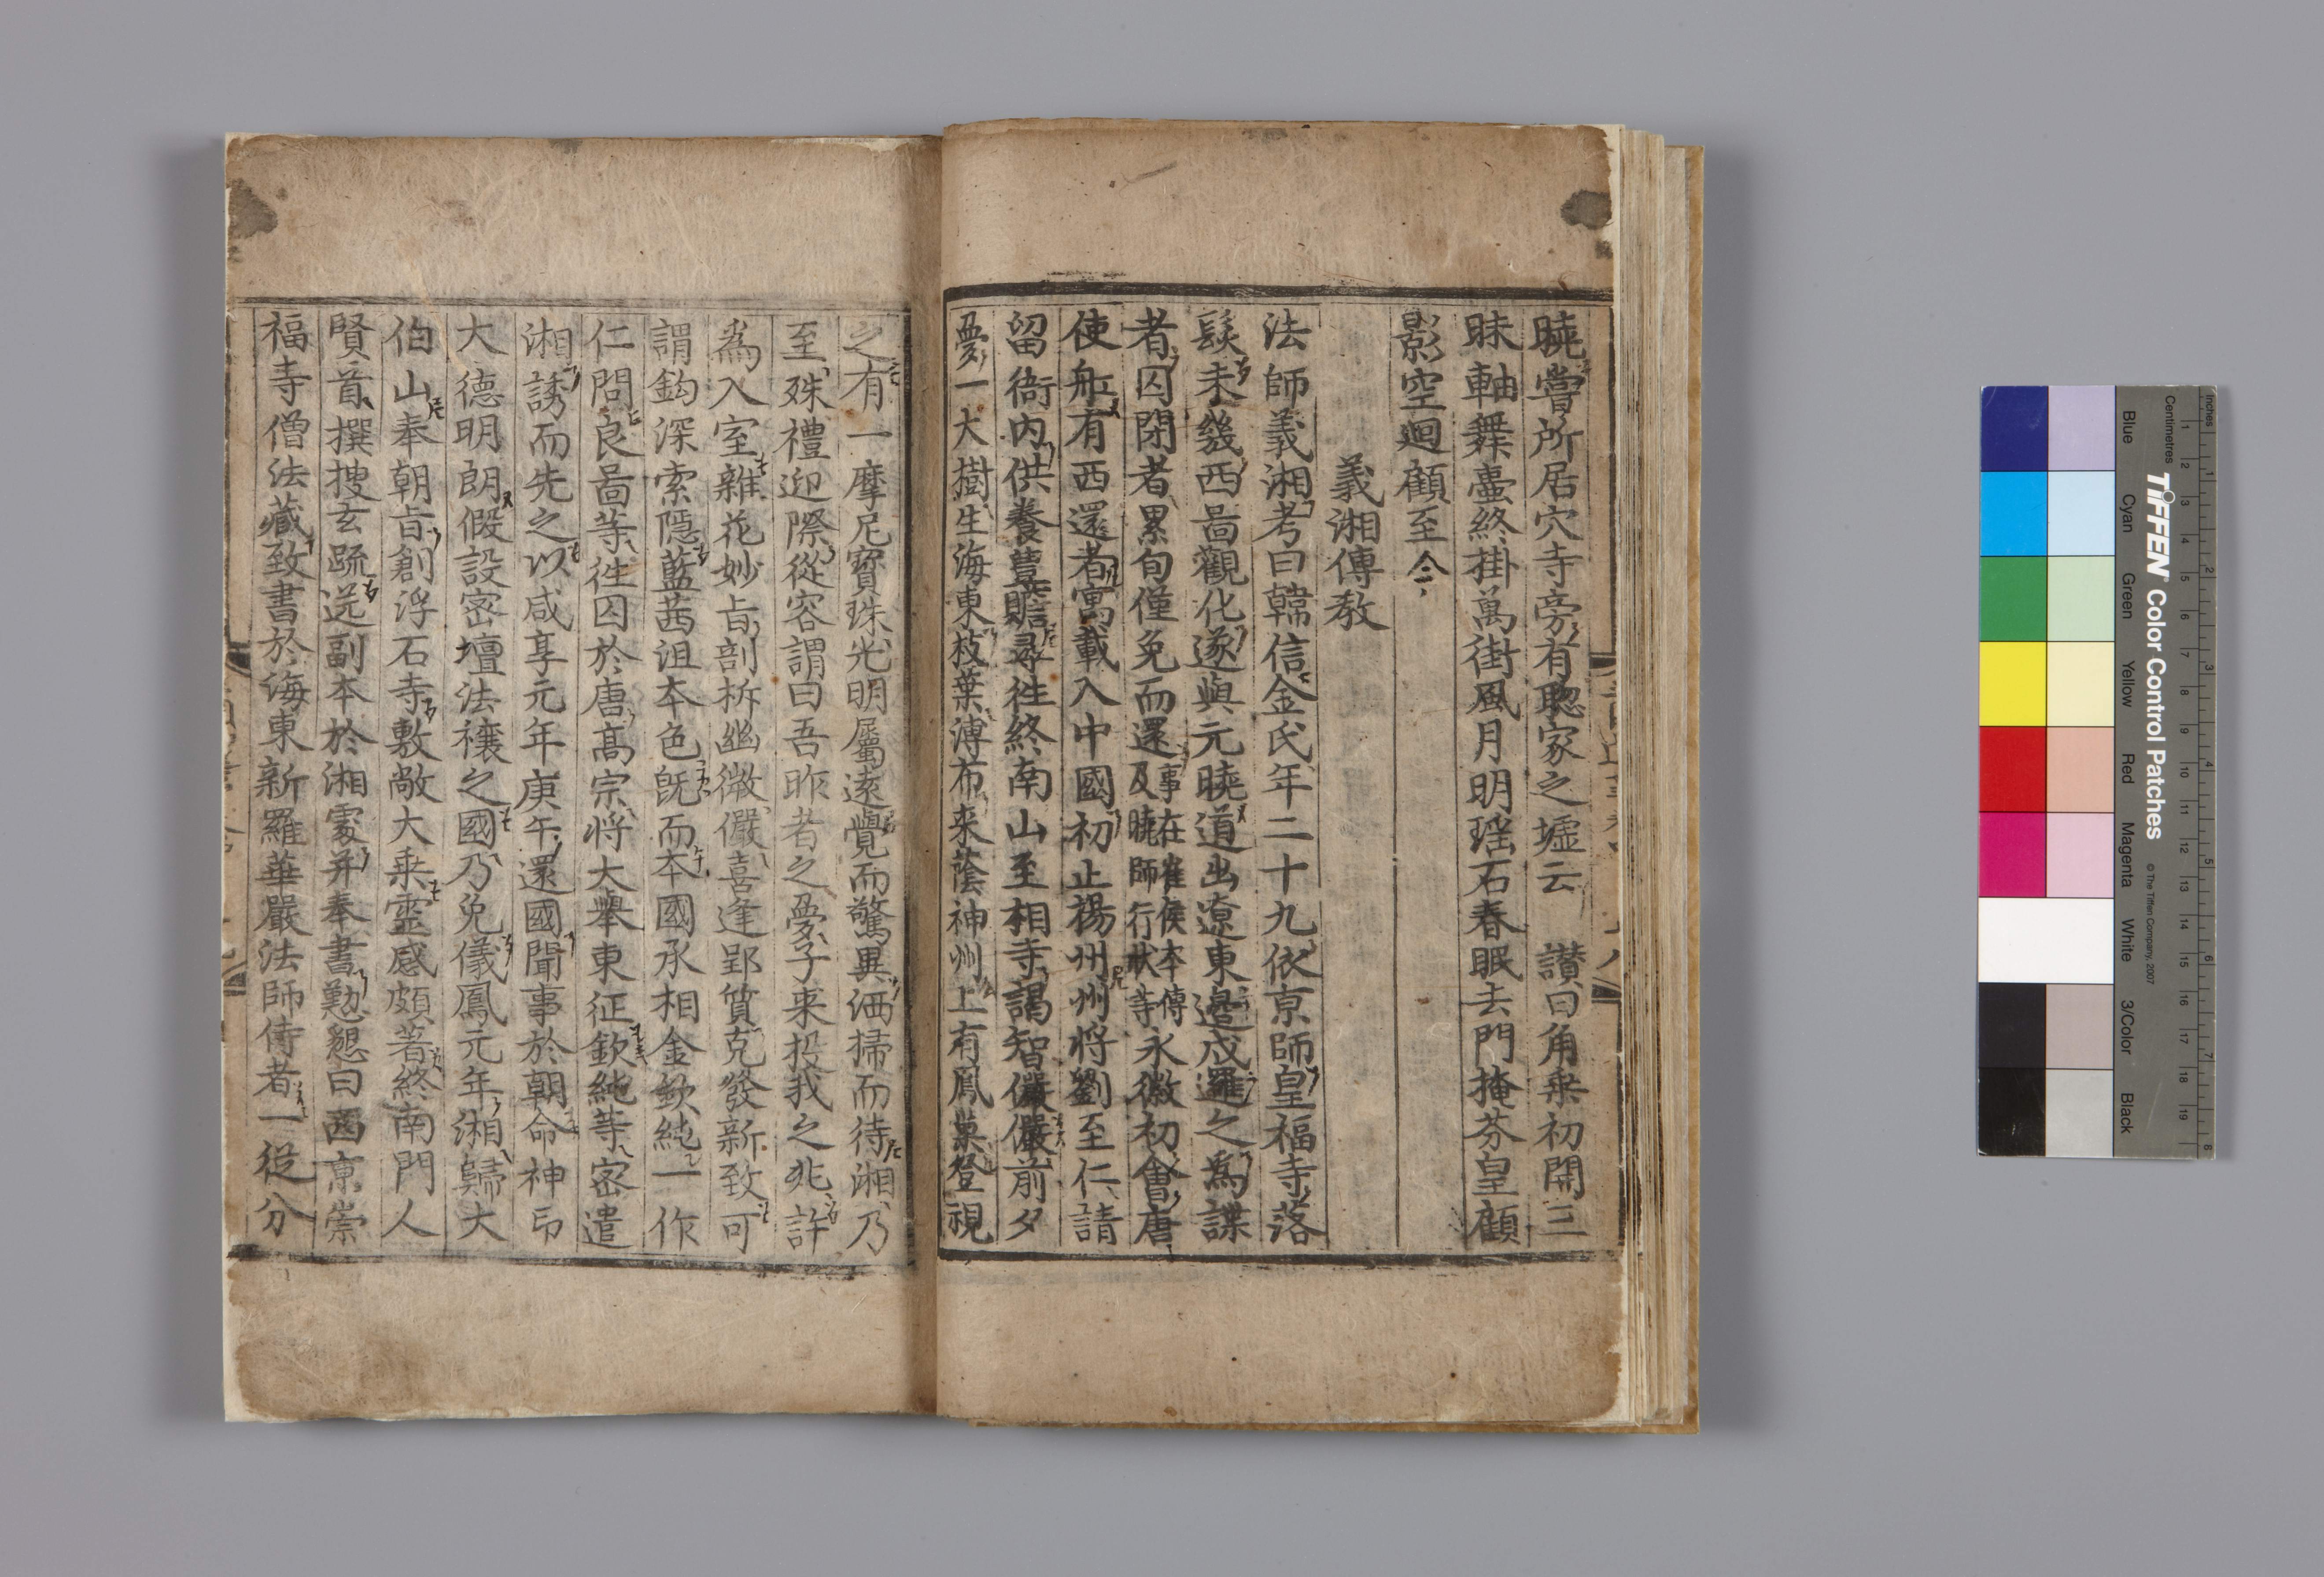 曉嘗所居穴寺旁有聦家之墟云　讚曰角乗初開三
昧軸舞壷終掛萬街風月明瑶石春眠去門掩芬皇顧
影空廻顧至今
義湘傳教
法師義湘考曰韓信金氏年二十九依京師皇福寺落
髮未幾西啚觀化遂與元曉道出遼東邉戍邏之為諜
者囚閉者累旬僅免而還事在崔侯本傳及曉師行狀等永徽初會唐
使舡有西還者寓載入中國初止揚州州将劉至仁請
留衙内供養豊贍尋徃終南山至相寺謁智儼儼前夕
夢一大樹生海東枝葉溥布来蔭神州上有鳳巢登視
之有一摩尼寳珠光明屬逺覺而驚異洒掃而待湘乃
至殊禮迎際從容謂曰吾昨者之夢子来投我之兆許
為入室雜花妙㫖剖柝幽微儼喜逢郢質克發新致可
謂鈎深索隠藍茜沮本色旣而本國承相金欽純一作
仁問良啚等徃囚於唐髙宗将大舉東征欽純等宻遣
湘誘而先之以咸享元年庚午還國聞事於朝命神印
大德明朗假設宻壇法禳之國乃免儀鳳元年湘歸大
伯山奉朝㫖創浮石寺敷敞大乗霊感頗著終南門人
賢首撰搜玄䟽送副本於湘處并奉書懃懇曰西京崇
福寺僧法藏致書於海東新羅華嚴法師侍者一從分
Inches
Centimetres
TIFFEN Color Control Patches
© The Tiffen Company, 2007
Blue Cyan Green Yellow Red Magenta White 3/Color Black
1 2 3 4 5 6 7 8
1 2 3 4 5 6 7 8 9 10 11 12 13 14 15 16 17 18 19